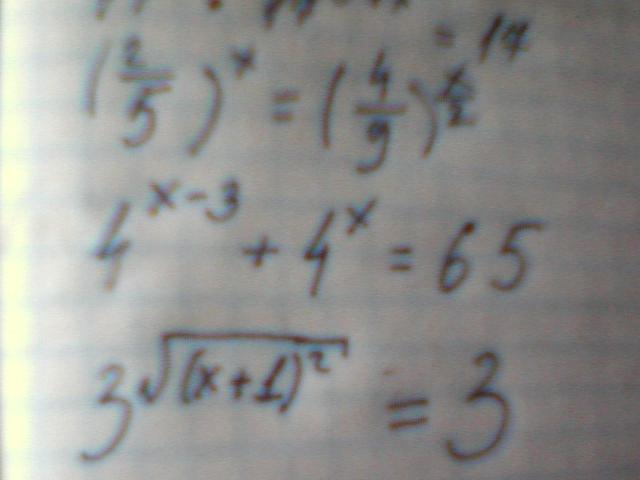 = 17
(2/5)^x = (4/9)^(x/2)
4^(x-3) + 4^x = 65
3^√((x+1)^2) = 3